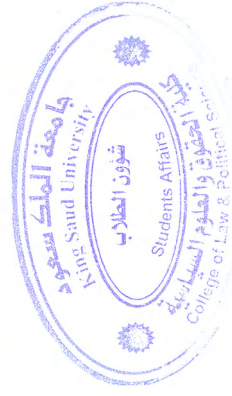 جامعة الملك سعود
King Saud University
شؤون الطلاب
Students Affairs
كلية الحقوق والعلوم السياسية
College of Law & Political